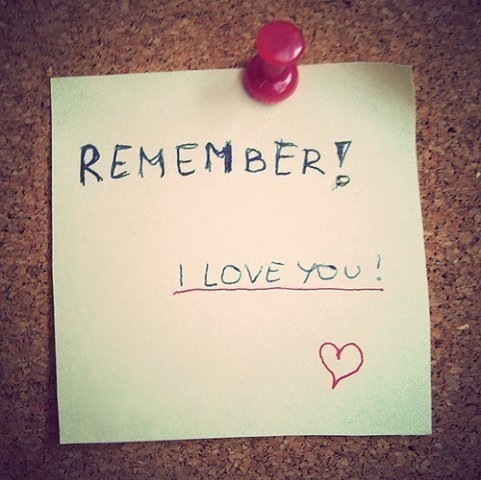 REMEMBER!
I LOVE YOU!